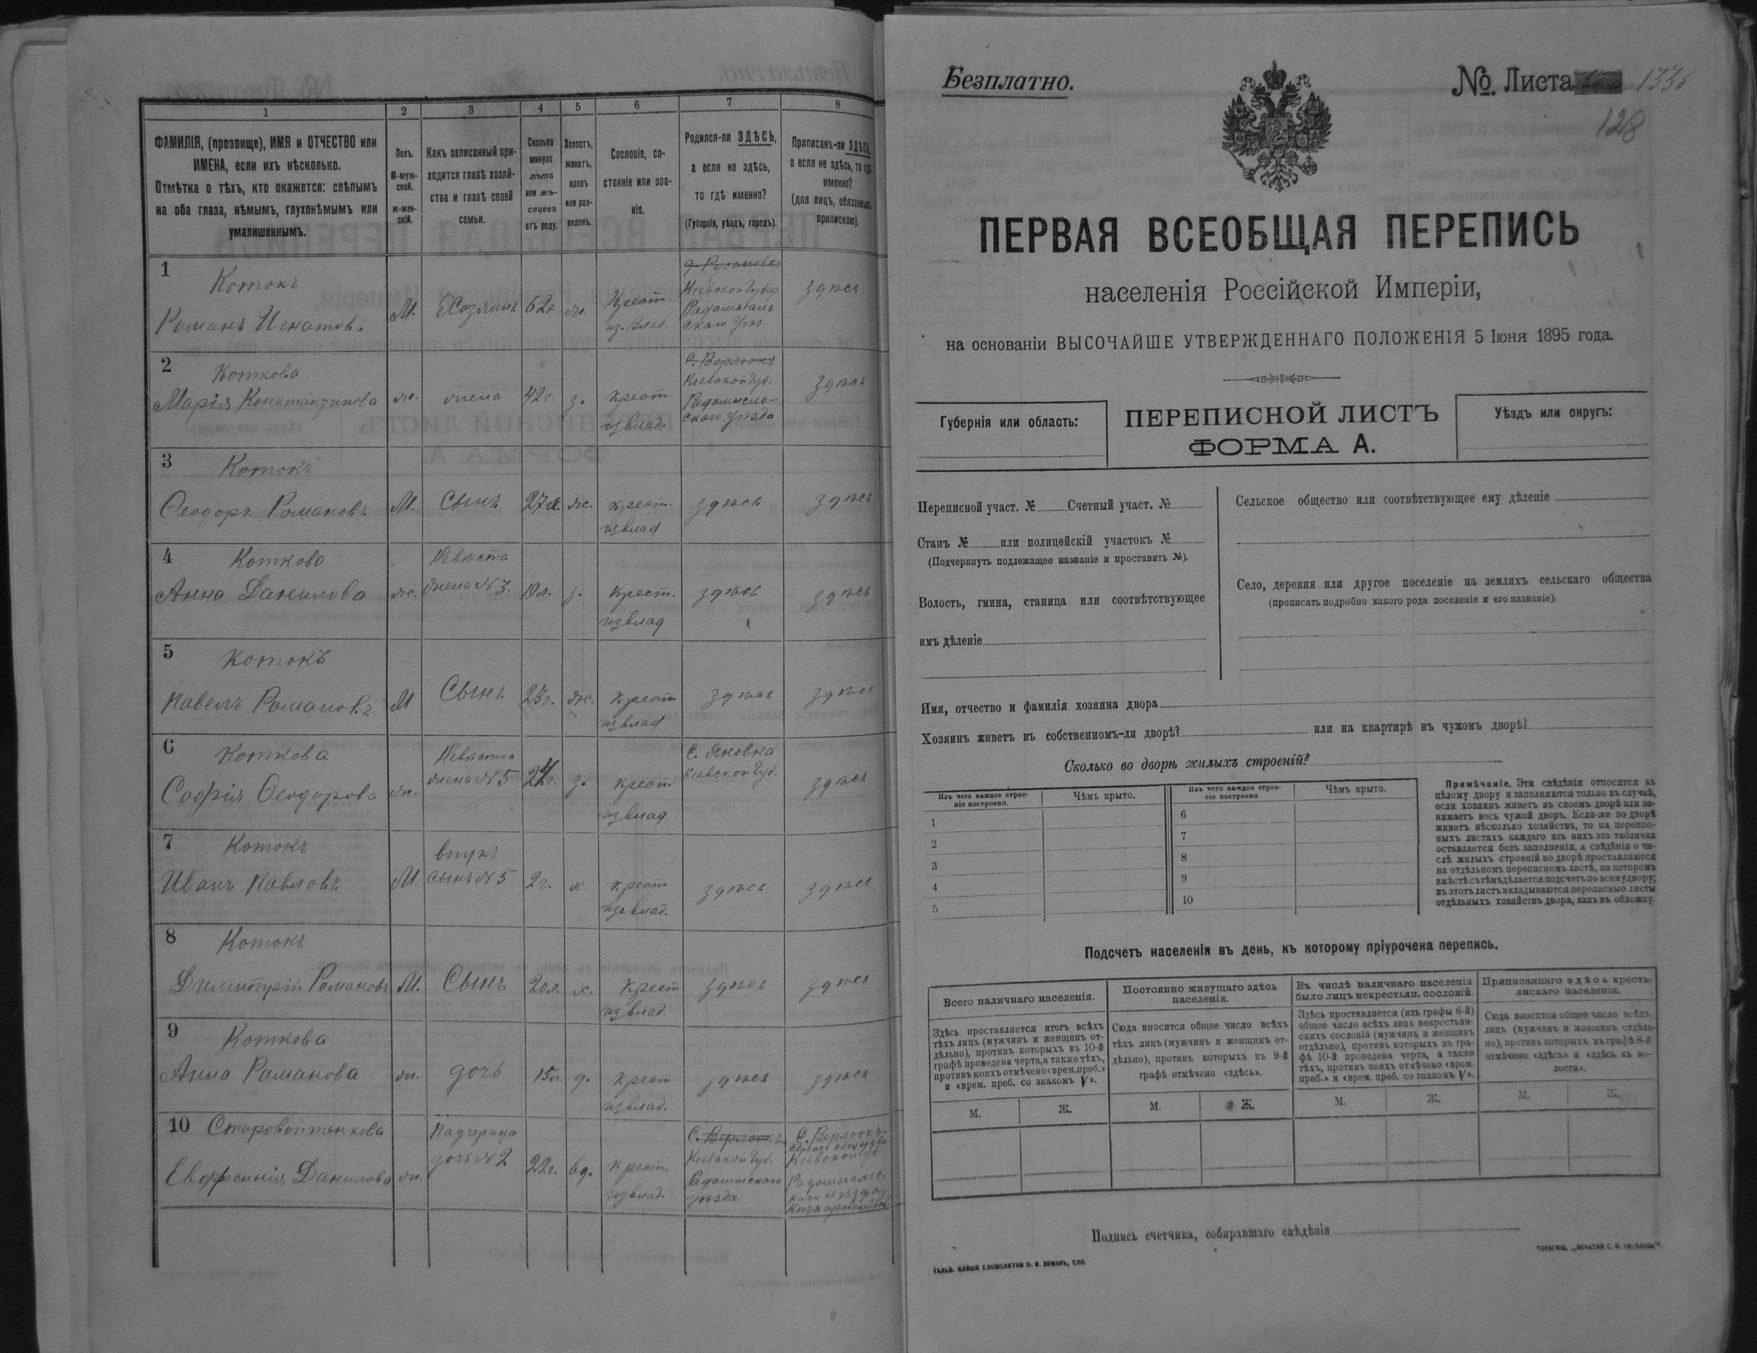 1
2
3
4
5
6
7
8
ФАМИЛІЯ, (прозвище), ИМЯ и ОТЧЕСТВО или
ИМЕНА, если ихъ нѣсколько.
Отмѣтка о тѣхъ, кто окажется: слѣпымъ
на оба глаза, нѣмымъ, глухонѣмымъ или
умалишеннымъ.
Полъ.
М-муж-
ской.
ж-жен-
скій.
Какъ записанный при-
ходится главѣ хозяй-
ства и главѣ своей
семьи.
Сколько
минуло
лѣтъ
или мѣ-
сяцевъ
отъ роду.
Холостъ,
женатъ,
вдовъ
или раз-
веденъ.
Сословіе, со-
стояніе или зва-
ніе.
Родился-ли ЗДѢСЬ,
а если не здѣсь,
то гдѣ именно?
(Губернія, уѣздъ, городъ).
Приписанъ-ли ЗДѢСЬ,
а если не здѣсь, то гдѣ
именно?
(для лицъ, обязанныхъ
припискою).
1
Котокъ
Романъ Игнатовъ
М.
Хозяинъ
62г.
ж.
Крест.
из. влад.
Кіевской Губер
Радомысль
скаго Уѣз.
здѣсь
2
Коткова
Марія Константинова
ж.
жена
42г.
з.
крест.
изъ влад.
С. Верлокъ
Кіевской Губ.
Радомысль-
скаго уѣзда
здѣсь
3
Котокъ
Ѳеодоръ Романовъ
М.
Сынъ
27л.
ж.
крест.
изъ влад
здѣсь
здѣсь
4
Коткова
Анна Данилова
ж.
Невѣста
жена №3.
з.
крест.
изъ влад
здѣсь
здѣсь
5
Котокъ
Павелъ Романовъ
М
Сынъ
ж.
крест
изъ влад
здѣсь
здѣсь
6
Коткова
Софія Ѳеодорова
ж.
Невѣста
жена №5
з.
крест
изъ влад
С. Яновка
Кіевской Губ.
здѣсь
7
Котокъ
Иванъ Павловъ
М.
внукъ
сынъ №5
2г.
х.
крест
изъ влад.
здѣсь
здѣсь
8
Котокъ
Димитрій Романовъ
М.
Сынъ
20л.
х.
крест
изъ влад.
здѣсь
здѣсь
9
Коткова
Анна Романова
ж.
дочь
15л.
д.
крест
изъ влад.
здѣсь
здѣсь
10 Старовойтенкова
Евфросинія Данилова
ж.
Падчерица
дочь №2
22г.
вд.
крест.
изъ влад.
С. Верлокъ
Кіевской Губ.
Радомысльскаго
уѣзда
С. Верлокъ
Кіевской Губ
Радомысльс.
каго уѣзда
Безплатно.
№. Листа
1336
128
ПЕРВАЯ ВСЕОБЩАЯ ПЕРЕПИСЬ
населенія Россійской Имперіи,
на основаніи ВЫСОЧАЙШЕ УТВЕРЖДЕННАГО ПОЛОЖЕНІЯ 5 Іюня 1895 года.
Губернія или область:
ПЕРЕПИСНОЙ ЛИСТЪ
ФОРМА А.
Уѣздъ или округъ:
Переписной участ. № Счетный участ. №
Станъ № или полицейскій участокъ №
(Подчеркнуть подлежащее названіе и проставить №).
Волость, гмина, станица или соотвѣтствующее
имъ дѣленіе
Сельское общество или соотвѣтствующее ему дѣленіе
Село, деревня или другое поселеніе на земляхъ сельскаго общества
(прописать подробно какого рода поселеніе и его названіе).
Имя, отчество и фамилія хозяина двора
Хозяинъ живетъ въ собственномъ-ли дворѣ? или на квартирѣ въ чужомъ дворѣ?
Сколько во дворѣ жилыхъ строеній?
Изъ чего каждое строе-
ніе построено.
Чѣмъ крыто.
Изъ чего каждое строе-
ніе построено.
Чѣмъ крыто.
1
2
3
4
5
6
7
8
9
10
Примѣчаніе. Эти свѣдѣнія относятся къ
цѣлому двору и заполняются только въ случаѣ,
если хозяинъ живетъ въ своемъ дворѣ или за-
нимаетъ весь чужой дворъ. Если-же во дворѣ
живетъ нѣсколько хозяйствъ, то на перепис-
ныхъ листахъ каждаго изъ нихъ эта табличка
оставляется безъ заполненія, а свѣдѣнія о чи-
слѣ жилыхъ строеній во дворѣ проставляются
на отдѣльномъ переписномъ листѣ, на которомъ
вмѣстѣ съ тѣмъ дѣлается подсчетъ по всему двору;
въ этотъ листъ вкладываются переписные листы
отдѣльныхъ хозяйствъ двора, какъ въ обложку.
Подсчетъ населенія въ день, къ которому пріурочена перепись.
Всего наличнаго населенія.
Постоянно живущаго здѣсь
населенія.
Въ числѣ наличнаго населенія
было лицъ некрестьян. сословій.
Приписаннаго здѣсь кресть-
янскаго населенія.
Здѣсь проставляется итогъ всѣхъ
тѣхъ лицъ (мужчинъ и женщинъ от-
дѣльно), противъ которыхъ въ 10-й
графѣ проведена черта, а также тѣхъ,
противъ коихъ отмѣчено «врем. преб.»
и «врем. преб. со знакомъ V».
Сюда вносится общее число всѣхъ
тѣхъ лицъ (мужчинъ и женщинъ от-
дѣльно), противъ которыхъ въ 9-й
графѣ отмѣчено «здѣсь».
Здѣсь проставляется (изъ графы 6-й)
общее число всѣхъ лицъ некрестьян-
скихъ сословій (мужчинъ и женщинъ
отдѣльно), противъ которыхъ въ гра-
фѣ 10-й проведена черта, а также
тѣхъ, противъ коихъ отмѣчено «врем.
преб.» и «врем. преб. со знакомъ V».
Сюда вносится общее число всѣхъ
лицъ (мужчинъ и женщинъ отдѣль-
но), противъ которыхъ въ графѣ 8-й
отмѣчено «здѣсь» и «здѣсь въ во-
лости».
М.
Ж.
М.
Ж.
М.
Ж.
М.
Ж.
Подпись счетчика, собиравшаго свѣдѣнія
ГАЛЬВ. КЛИШЕ СЛОВОЛИТНИ О. И. ЛЕМАНЪ, СПБ.
ТОВАРИЩ. „ПЕЧАТНЯ С. П. ЯКОВЛЕВА“.